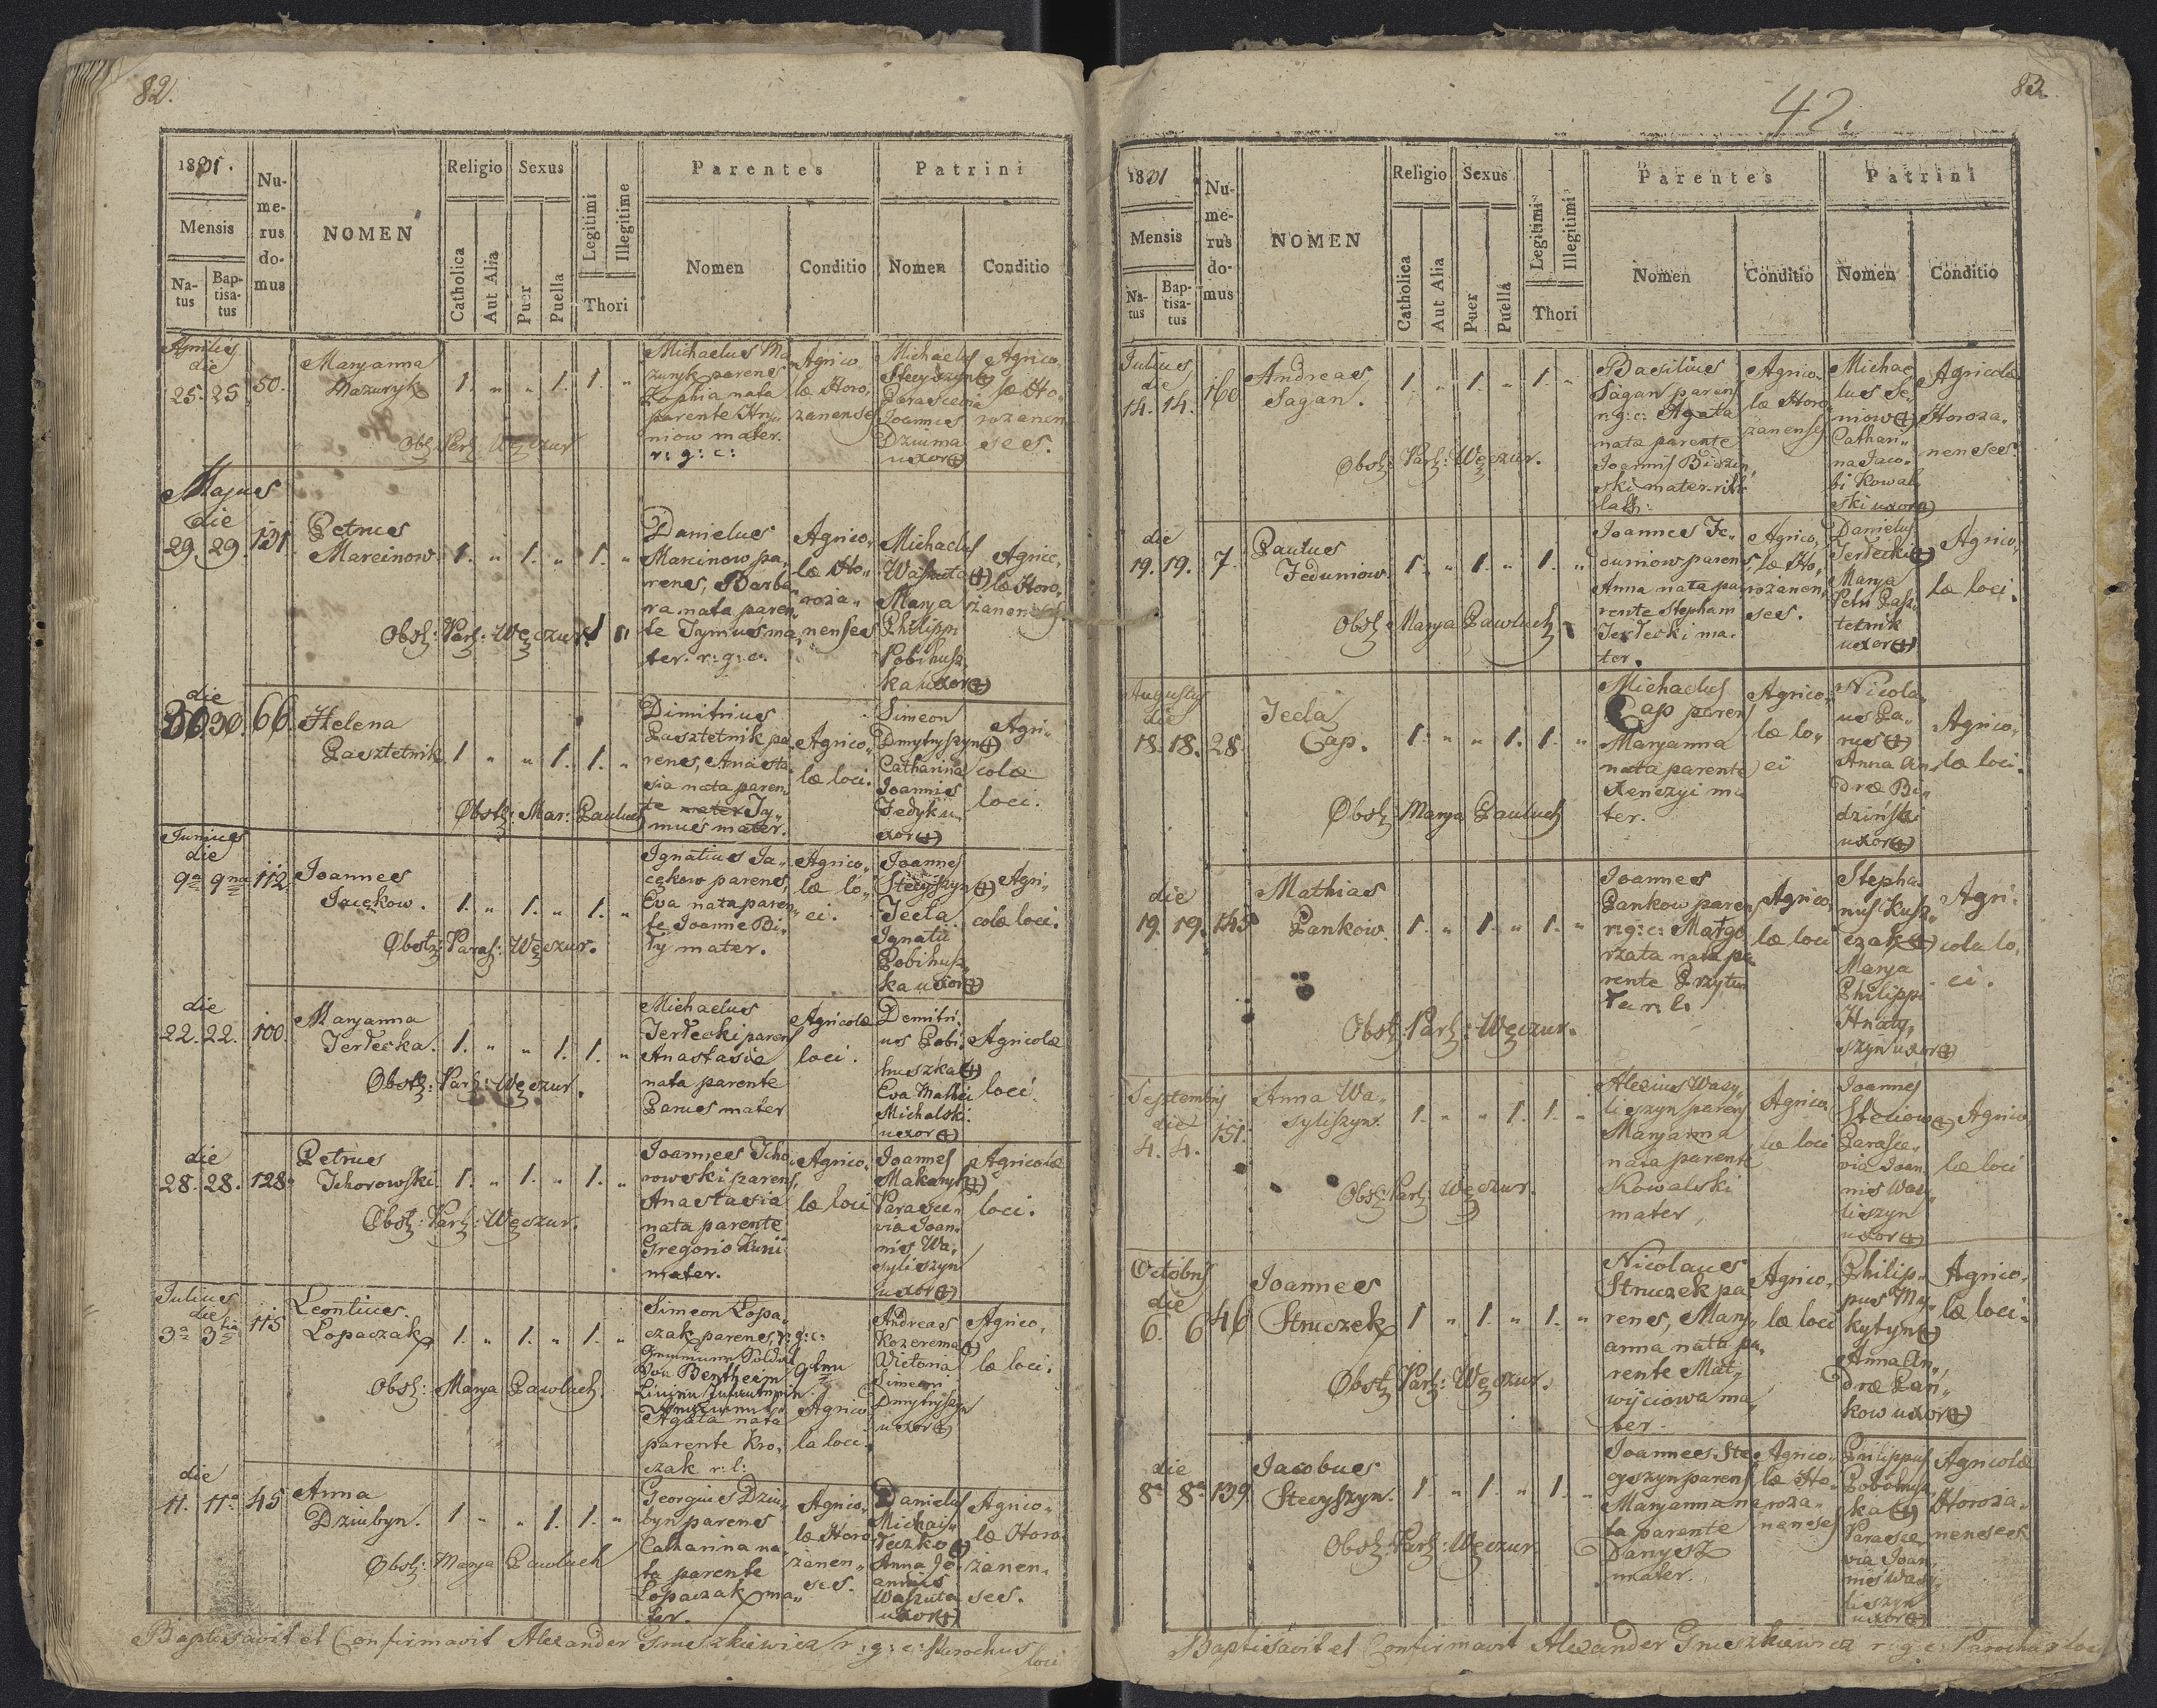 82.
1831.
Mensis
Na-
tus
Bap-
tisa-
tus
Nu-
me-
rus
do-
mus
NOMEN
Religio
Catholica
Aut Alia
Sexus
Puer
Puella
Legitimi
Illegitime
Thori
Parentes
Nomen
Conditio
Patrini
Nomen
Conditio
Aprilis
die
25. 25. 50.
Maryanna
Mazuryk
1. " " 1. 1. "
Michaelus Ma
zuryk parens
Zophia nata
parente Hry„
niow mater.
r: g: c:
Agrico
læ Horo„
zanenses
Michaelus
Stecyszyn
Parascevia
Joannis
Dziuma
uxor
Agrico„
læ Ho„
rozanen
ses.
Obst: Parß: Węczur
Majus
die
29. 29. 131.
Petrus
Marcinow.
1. " 1. " 1. "
Danielus
Marcinow pa„
rens, Barba„
ra nata paren„
te Tymus ma„
ter. r: g: c.
Agrico„
læ Ho„
roza„
nenses
Michaelus
Waszuta
Marya
Philippi
Pobihusz„
ka uxor
Agric„
læ Horo„
zanenses
Obst: Parß: Węczur.
die
30. 30. 66.
Helena
Pasztetnik
1 " " 1. 1. "
Dimitrius
Pasztetnik pa„
rens, Anasta
sia nata paren
te mater Ty„
mus mater.
Agrico„
læ loci.
Simeon
Dmytryszyn
Catharina
Joannis
Fedyk u„
xor
Agri„
colæ
loci.
Obst: Mar: Pauluch
Junius
die
9a 9na 112.
Joannes
Jacękow.
1. " 1. " 1. "
Ignatius Ja„
cękow parens,
Eva nata paren„
te Joanne Bi„
ły mater.
Agrico„
læ lo„
ci.
Joannes
Stecyszyn
Tecla
Ignatii
Pobihusz„
ka uxor
Agri„
colæ loci.
Obst: Paraß: Węczur.
die
22. 22. 100.
Maryanna
Jerłecka.
1. " " 1. 1. "
Michaelus
Jerłecki parens
Anastasia
nata parente
Parus mater
Agricolæ
loci.
Demitri„
us Pobi„
huszka
Eva Mathei
Michalski
uxor
Agricolæ
loci.
Obst: Parß: Węczur.
die
28. 28. 128.
Petrus
Ichorowski.
1. " 1. " 1. "
Joannes Icho„
rowski parens,
Anastasia
nata parente
Gregorio Kunii
mater.
Agrico„
læ loci
Joannes
Makaryk
Parasce„
via Joan„
nis Wa„
syliszyn
uxor
Agricolæ
loci.
Obst: Parß: Węczur.
Julius
die
3a 3tia 115
Leontius.
Lopaczak
1. " 1. " 1. "
Simeon Lopa„
czak parens, r: g: c:
Agata nata
parente Kro„
czak r: l:
Agrico
la loci.
Andreas
Kozerema
Victoria
Simeoni
Dmytryszyn
uxor
Agrico„
læ loci.
Obst: Marya Pawluch.
die
11. 11a 45
Anna
Dziubyn.
1 " " 1. 1. "
Georgius Dziu„
byn parens
Catharina na
ta parente
Lopaczak ma„
ter.
Agrico„
læ Horo
zanen„
ses.
Danielus
Michai„
łeczko
Anna Jo„
annis
Waszuta
uxor
Agrico„
læ Horo
zanen„
ses.
Obst: Marya Pawluch
Baptisavit et Confirmavit Alexander Gruszkiewicz r: g: c: Parochus loci
83.
42.
1831
Mensis
Na-
tus
Bap-
tisa-
tus
Nu-
me-
rus
do-
mus
NOMEN
Religio
Catholica
Aut Alia
Sexus
Puer
Puella
Legitimi
Illegitimi
Thori
Parentes
Nomen
Conditio
Patrini
Nomen
Conditio
Julius
die
14. 14. 160
Andreas
Sagan.
1. " 1. " 1. "
Basilius
Sagan parens
r: g: c: Agata
nata parente
Joannis Bidzin„
ski mater rit:
lat:
Agrico„
læ Horo„
zanenses
Michae„
lus Se„
niow
Cathari„
na Jaco„
bi Kowal„
ski uxor
Agricolæ
Horoza„
nenses.
Obst: Parß: Węczur.
die
19. 19. 7.
Paulus
Feduniow.
1. " 1. " 1. "
Joannes Fe„
duniow parens,
Anna nata pa„
rente Stephani
Jerłecki ma„
ter.
Agrico„
læ Ho„
rozanen„
ses.
Danielus
Jerłecki
Marya
Petri Pasz„
tetnik
uxor
Agrico„
læ loci.
Obst: Marya Pawluch
Augustus
die
18. 18. 28.
Tecla
Cap.
1. " " 1. 1. "
Michaelus
Cap parens
Maryanna
nata parente
Xenczyi ma
ter.
Agrico„
læ lo„
ci
Nicola„
us Pa„
rus
Anna An„
dræ Bi„
dziński
uxor
Agrico„
læ loci.
Obst: Marya Pauluch
die
19. 19. 145
Mathias
Pankow.
1. " 1. " 1. "
Joannes
Pankow parens
r: g: c: Małgo
rzata nata pa
rente Przytu
ła r: l:
Agrico„
læ loci
Stepha„
nus Kusz„
czak
Marya
Philippi
Hnaty„
szyn uxor
Agri„
colæ lo„
ci.
Obst: Parß: Węczur.
Septembris
die
4. 4. 151.
Anna Wa„
syliszyn.
1. " " 1. 1. "
Alexius Wasy„
liszyn parens
Maryanna
nata parente
Kowalski
mater,
Agrico„
læ loci
Joannes
Steciow
Parasce„
via Joan„
nis Wasy„
liszyn
uxor
Agrico„
læ loci
Obst: Parß Węczur.
Octobris
die
6. 6 46
Joannes
Struczek
1 " 1. " 1. "
Nicolaus
Struczek pa„
rens, Mary„
anna nata pa„
rente Mat„
wijciowa ma„
ter.
Agrico„
læ loci
Philip„
pus My„
kytyn
Anna An„
dræ Pań„
kow uxor
Agrico„
læ loci.
Obst: Parß: Węczur.
die
8a 8a 139
Jacobus
Stecyszyn.
1. " 1. " 1. "
Joannes Ste
cyszyn parens
Maryanna na
ta parente
Danysz
mater.
Agrico„
læ Ho„
roza„
nenses
Philippus
Pobohusz„
ka
Parasce„
via Joan„
nis Wasy„
liszyn
uxor
Agricolæ
Horoza„
nenses
Obst: Parß: Węczur
Baptisavit et Confirmavit Alexander Gruszkiewicz r: g: c: Parochus loci